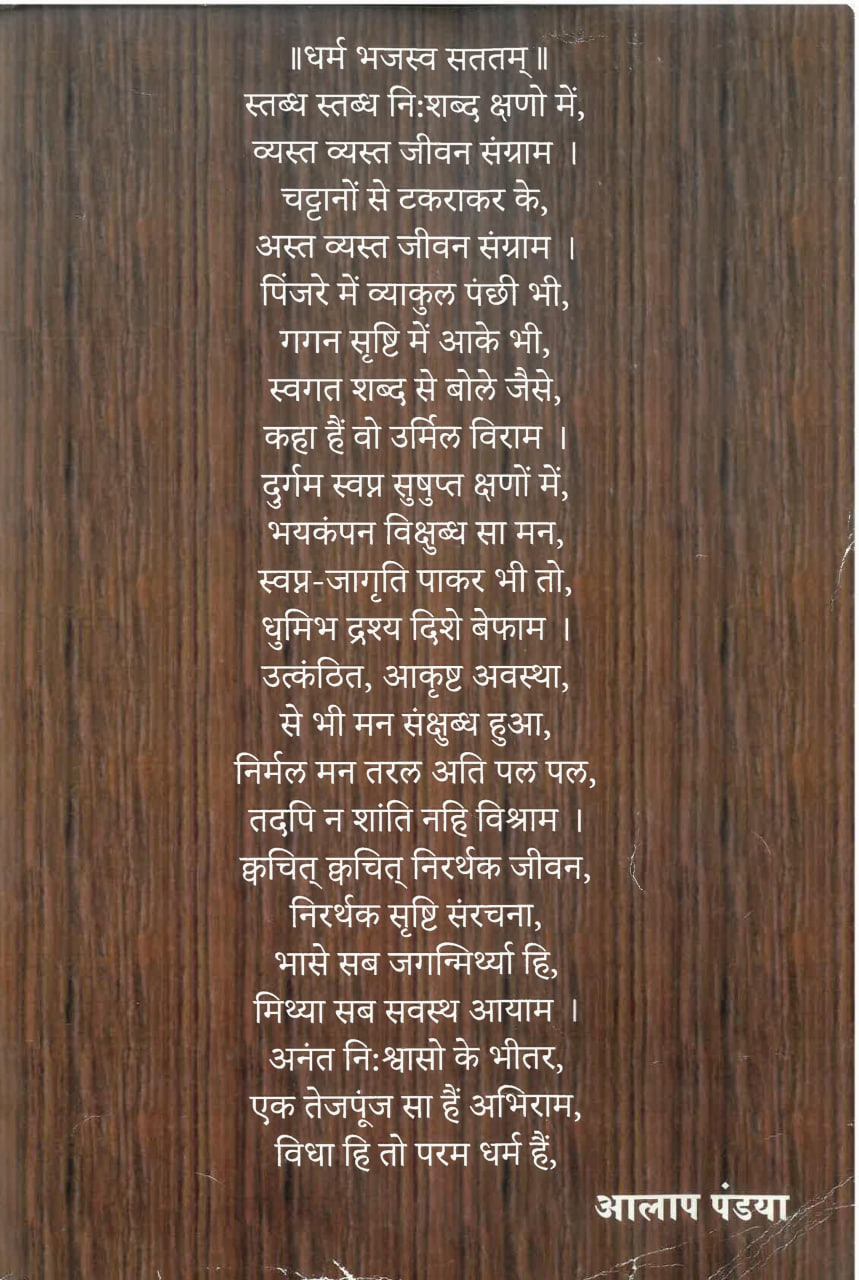 ॥धर्म भजस्व सततम्॥
स्तब्ध स्तब्ध नि:शब्द क्षणो में,
व्यस्त व्यस्त जीवन संग्राम ।
चट्टानों से टकराकर के,
अस्त व्यस्त जीवन संग्राम ।
पिंजरे में व्याकुल पंछी भी,
गगन सृष्टि में आके भी,
स्वगत शब्द से बोले जैसे,
कहा हैं वो उर्मिल विराम ।
दुर्गम स्वप्न सुषुप्त क्षणों में,
भयकंपन विक्षुब्ध सा मन,
स्वप्न-जागृति पाकर भी तो,
धुमिभ द्रश्य दिशे बेफाम ।
उत्कंठित, आकृष्ट अवस्था,
से भी मन संक्षुब्ध हुआ,
निर्मल मन तरल अति पल पल,
तदपि न शांति नहि विश्राम ।
क्वचित् क्वचित् निरर्थक जीवन,
निरर्थक सृष्टि संरचना,
भासे सब जगन्मिर्थ्या हि,
मिथ्या सब सवस्थ आयाम ।
अनंत नि:श्वासो के भीतर,
एक तेजपूंज सा हैं अभिराम,
विधा हि तो परम धर्म हैं,
आलाप पंडया